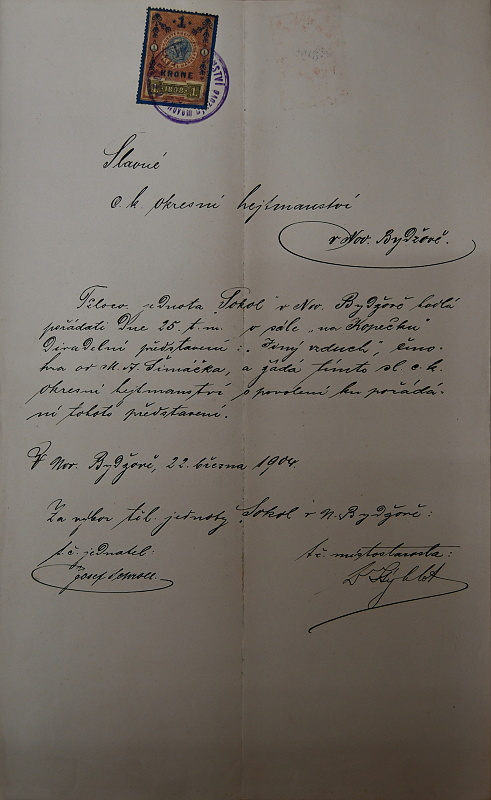 1
KRONE
1898
Slavné
c. k. okresní hejtmanství
v Nov. Bydžově.
Těloc. jednota "Sokol" v Nov. Bydžově hodlá
pořádati dne 25. t. m. v sále "na Kopečku"
divadelní představení: "Jiný vzduch", čino-
hra od M. A. Šimáčka, a žádá tímto sl. c. k.
okresní hejtmanství o povolení ku pořádá-
ní tohoto představení.
V Nov. Bydžově, 22. března 1904.
Za výbor těl. jednoty "Sokol" v N. Bydžově:
t. č. jednatel:
t. č. místostarosta:
Josef